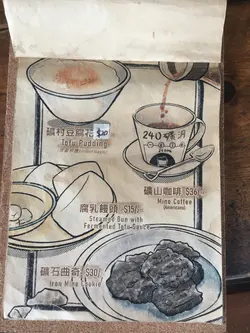 礦村豆腐花 $20
Tofu Pudding
240礦場
礦山咖啡 $36/-
Mine Coffee
(Americano)
腐乳饅頭 $15/-
Steamed Bun with
Fermented Tofu Sauce
礦石曲奇 $30/-
Iron Mine Cookie